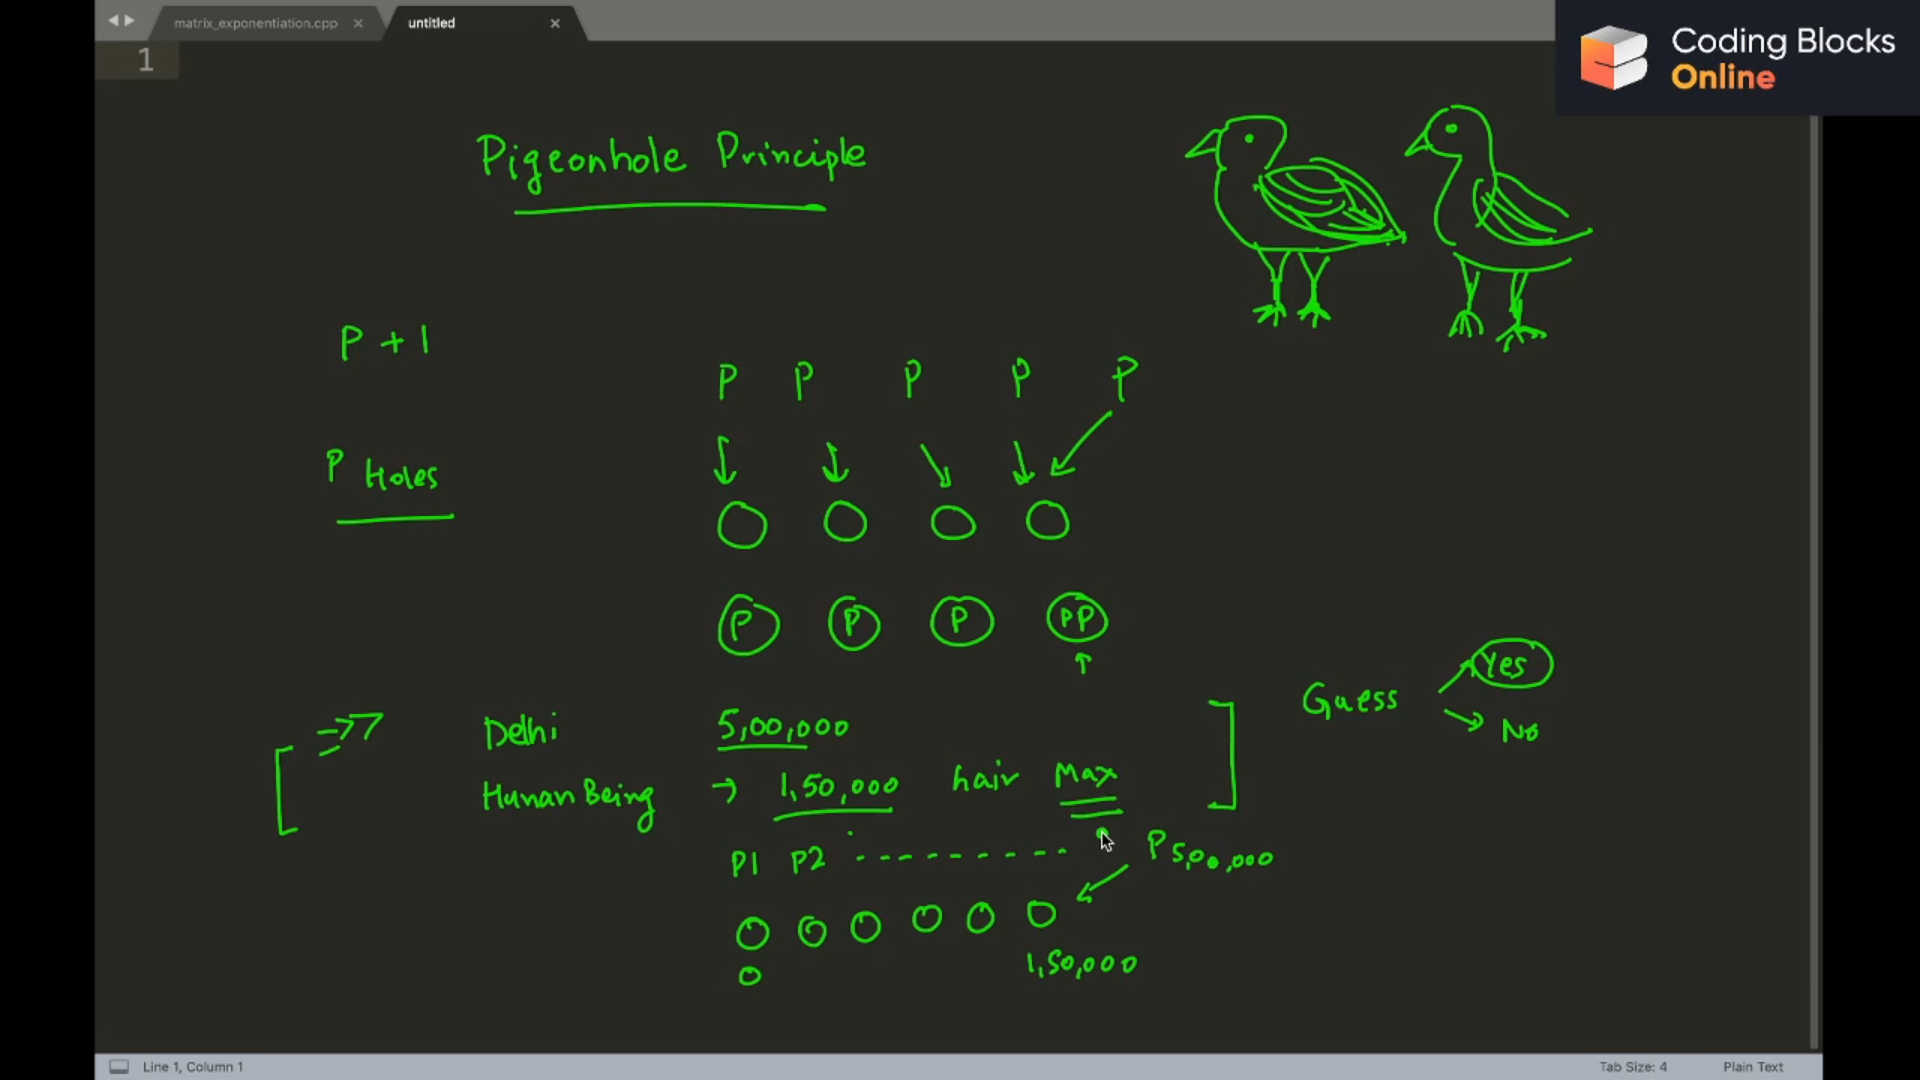 matrix_exponentiation.cpp ×
untitled ×
Coding Blocks
Online
1
Pigeonhole Principle
P + 1
P P P P P
P Holes
P P P PP
Delhi 5,00,000
Human Being → 1,50,000 hair Max
Guess
Yes
No
P1 P2 ---------- P5,00,000
0 1,50,000
Line 1, Column 1
Tab Size: 4
Plain Text